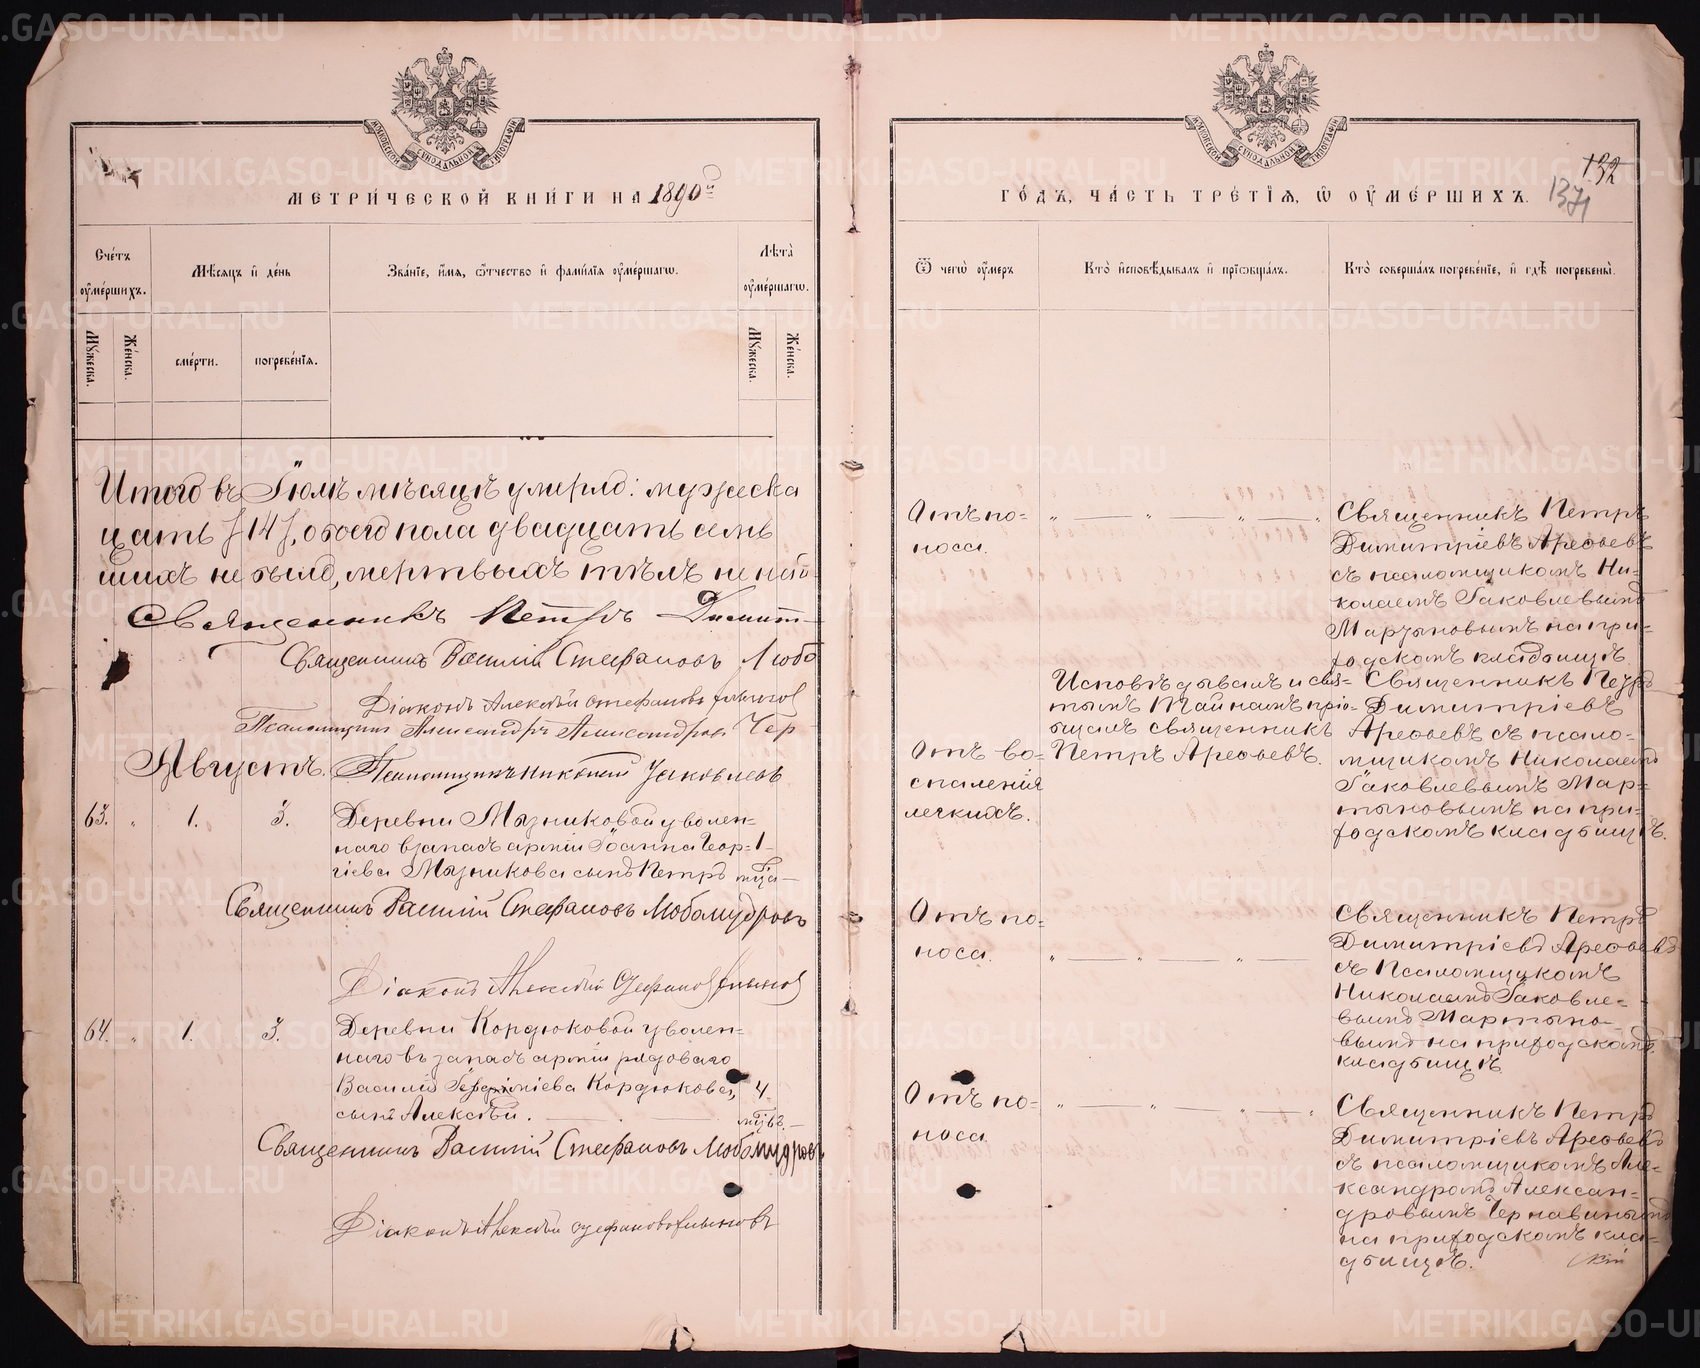 МЕТРИ́ЧЕСКОЙ КНИ́ГИ НА 1890 й
Сче́тъ ᲂу҆ме́ршихъ.
Мꙋ́жеска. Же́нска.
Мѣ́сяцъ и҆ де́нь
сме́рти. погребе́нїѧ.
Зва́нїе, и҆́мѧ, ѻ҆́тчество и҆ фами́лїѧ ᲂу҆ме́ршагѡ.
Лѣ́та ᲂу҆ме́ршагѡ.
Мꙋ́жеска. Же́нска.
Итого въ Іюлѣ мѣсяцѣ умерло: мужеска
цать /14/, обоего пола двадцать семь
шихъ не было, мертвыхъ тѣлъ не най-
Священникъ Петръ Димит-
Священникъ Василій Стефановъ Любо
Діаконъ Алексѣй Стефановъ
Псаломщикъ Александръ Александровъ Чер
Августъ. Псаломщикъ Николай Іаковлевъ
63. " 1. 3. Деревни Мызниковой уволен-
наго въ запасъ арміи Іоанна Геор- 1
гіева Мызникова сынъ Петръ мѣся-
Священникъ Василій Стефановъ Любомудровъ
Діаконъ Алексѣй Стефановъ
64. " 1. 3. Деревни Кордюковой уволен-
наго въ запасъ арміи рядоваго
Василія Кордюкова, 4
сынъ Алексѣй. мѣс.
Священникъ Василій Стефановъ Любомудровъ
Діаконъ Алексѣй Стефановъ
ГО́ДЪ, ЧА́СТЬ ТРЕ́ТЇѦ, Ѡ҆ ОУ҆МЕ́РШИХЪ.
132
137
Ѿ чегѡ̀ ᲂу҆́меръ
Кто̀ и҆сповѣ́дывалъ и҆ прїѡбща́лъ.
Кто̀ соверша́лъ погребе́нїе, и҆ гдѣ̀ погребены̀.
Отъ по-
носа.
Священникъ Петръ
Димитріевъ Арефьевъ
съ псаломщикомъ Ни-
колаемъ Іаковлевымъ
Мартыновымъ на при-
ходскомъ кладбищѣ.
Отъ во-
спаленія
легкихъ.
Исповѣдывалъ и свя-
тымъ Тайнамъ пріо-
бщалъ священникъ
Петръ Арефьевъ.
Священникъ Петръ
Димитріевъ
Арефьевъ съ псало-
мщикомъ Николаемъ
Іаковлевымъ Мар-
тыновымъ на при-
ходскомъ кладбищѣ.
Отъ по-
носа.
Священникъ Петръ
Димитріевъ Арефьевъ
съ Псаломщикомъ
Николаемъ Іаковле-
вымъ Мартыно-
вымъ на приходскомъ
кладбищѣ
Отъ по-
носа.
Священникъ Петръ
Димитріевъ Арефьевъ
съ псаломщикомъ Але-
ксандромъ Алексан-
дровымъ Чернавинымъ
на приходскомъ кла-
дбищѣ.
METRIKI.GASO-URAL.RU